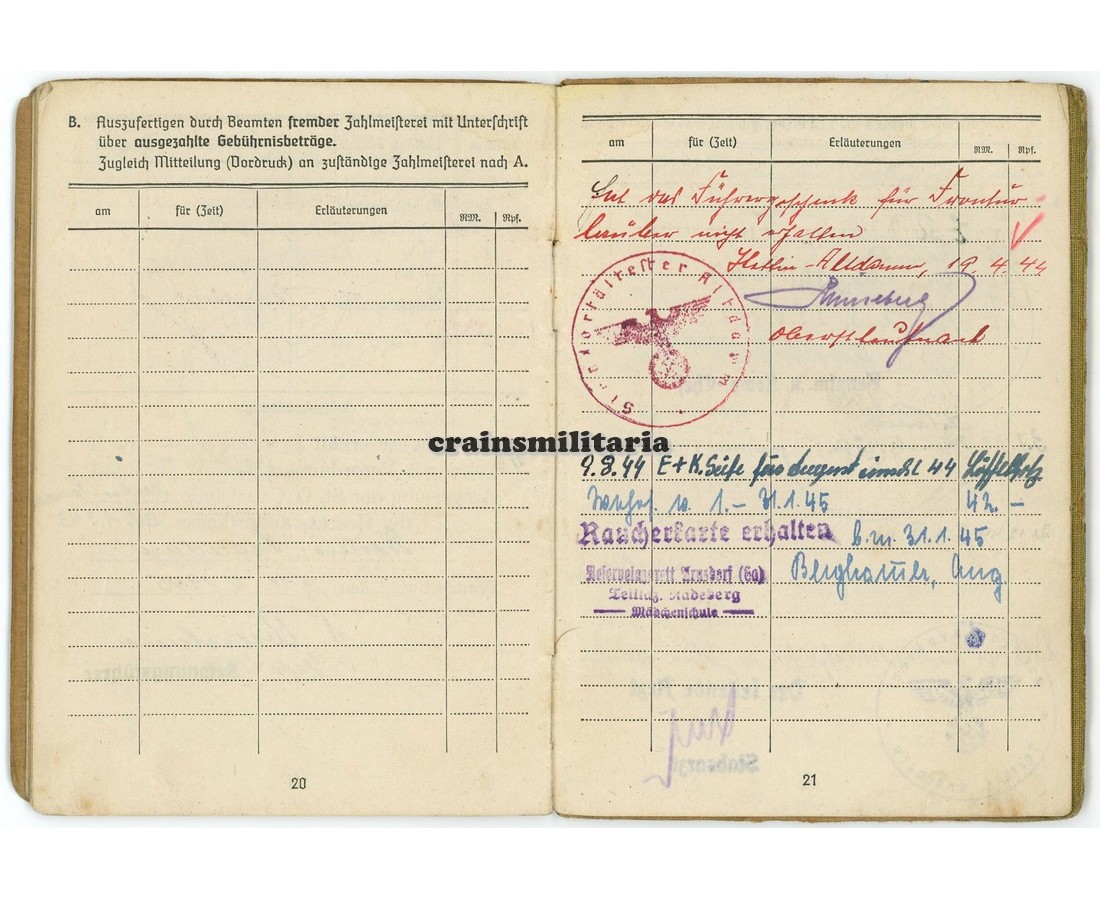 B. Auszufertigen durch Beamten fremder Zahlmeisterei mit Unterschrift
über ausgezahlte Gebührnisbeträge.
Zugleich Mitteilung (Vordruck) an zuständige Zahlmeisterei nach A.
am für (Zeit) Erläuterungen RM. Rpf.
20
am für (Zeit) Erläuterungen RM. Rpf.
Hat das Führergeschenk für Frontur-
lauber nicht erhalten
Stettin-Altdamm, 19.4.44
Standortältester Altdamm
Oberstleutnant
crainsmilitaria
9.8.44 E+K. Seife für August 44
v. 1.- 31.1.45 42.-
Raucherkarte erhalten b.m. 31.1.45
Reservelazarett Arnsdorf (Sa) Berghauser, Uffz
Teillaz. Radeberg
Mädchenschule
Stabsarzt
21